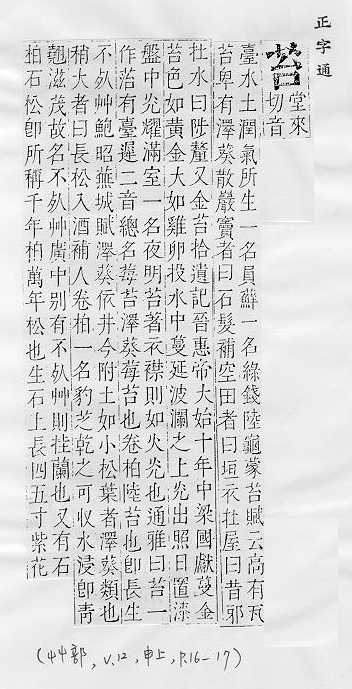 正字通
苔
堂來
切音
臺水土潤氣所生一名員蘚一名綠錢陸龜蒙苔賦云高有瓦
苔卑有澤葵散巖竇者曰石髮補空田者曰垣衣在屋曰昔邪
在水曰陟釐又金苔拾遺記晉惠帝大始十年中梁國獻蔓金
苔色如黃金大如雞卵投水中蔓延波瀾之上光出照日置漆
盤中光耀滿室一名夜明苔著衣襟則如火光也通雅曰苔一
作菭有臺遲二音總名莓苔澤葵莓苔也卷柏陸苔也卽長生
不死艸鮑昭蕪城賦澤葵依井今附土如小松葉者澤葵類也
稍大者曰長松入酒補人卷柏一名豹芝乾之可收水浸卽靑
翹滋茂故名不死艸廣中別有不死艸則挂蘭也又有石
柏石松卽所稱千年柏萬年松也生石上長四五寸紫花
(艸部, v.12, 申上, p.16-17)